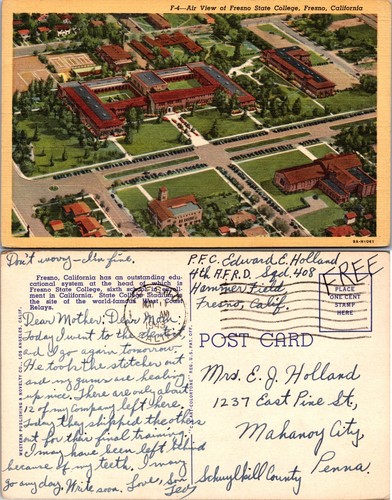 F-4—Air View of Fresno State College, Fresno, California
5A-H1091
Don't worry—I'm fine.
Fresno, California has an outstanding edu-
cational system at the head of which is
Fresno State College, sixth school in enroll-
ment in California. State College Stadium is
the site of the world-famous West Coast
Relays.
Dear Mother, Dear Mom:
Today I went to the dentist
and I go again tomorrow.
He took the stitches out
and my gums are healing
up nice. There are only about
12 of my company left here.
Today they shipped the others
out for their final training.
I may have been left behind
because of my teeth. I may
go any day. Write soon. Love, Son
Ted
WESTERN PUBLISHING & NOVELTY CO., LOS ANGELES, CALIF.
P.F.C. Edward E. Holland
4th A.F.R.D. Sqd. 408
Hammer Field
Fresno, Calif.
FREE
PLACE
ONE CENT
STAMP
HERE
POST CARD
Mrs. E. J. Holland
1237 East Pine St,
Mahanoy City,
Schuylkill County Penna.